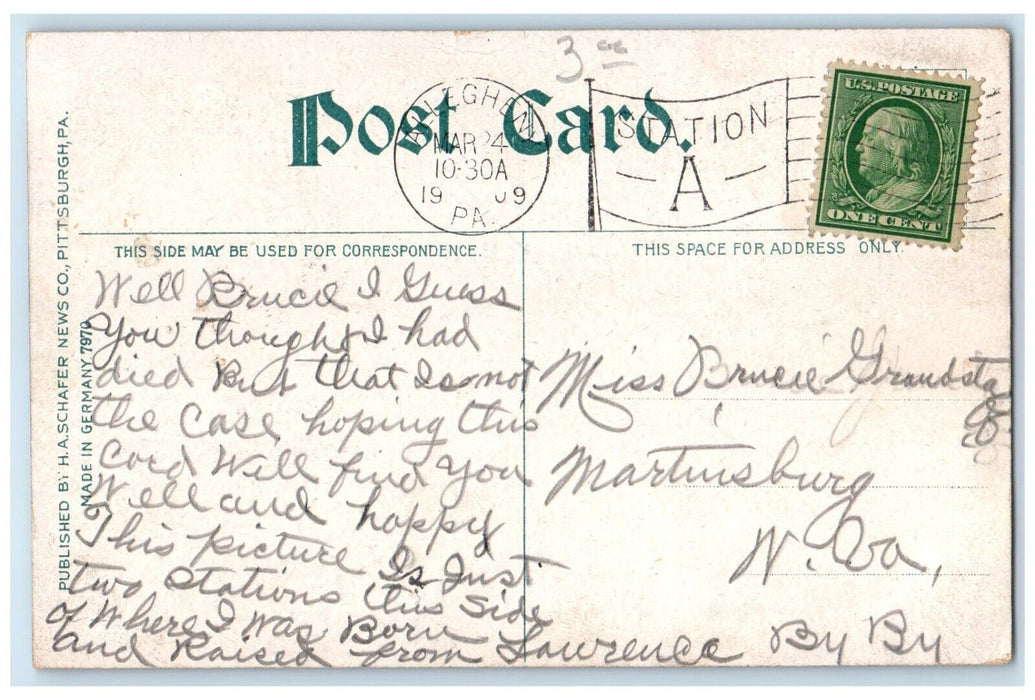 3 00
Post Card.
ALLEGHENY
MAR 24
10-30A
19 09
PA.
STATION
A
U.S. POSTAGE
ONE CENT
THIS SIDE MAY BE USED FOR CORRESPONDENCE.
THIS SPACE FOR ADDRESS ONLY.
PUBLISHED BY H.A. SCHAFER NEWS CO., PITTSBURGH, PA.
MADE IN GERMANY 7970
Well Brucie I Guess
You thought I had
died But that Is not
the Case hoping this
Card Will find you
Well and happy
This picture Is Just
two Stations this side
of Where I was Born
and Raised from Lawrence By By
Miss Brucie Grandstaff
Martinsburg
W. Va,